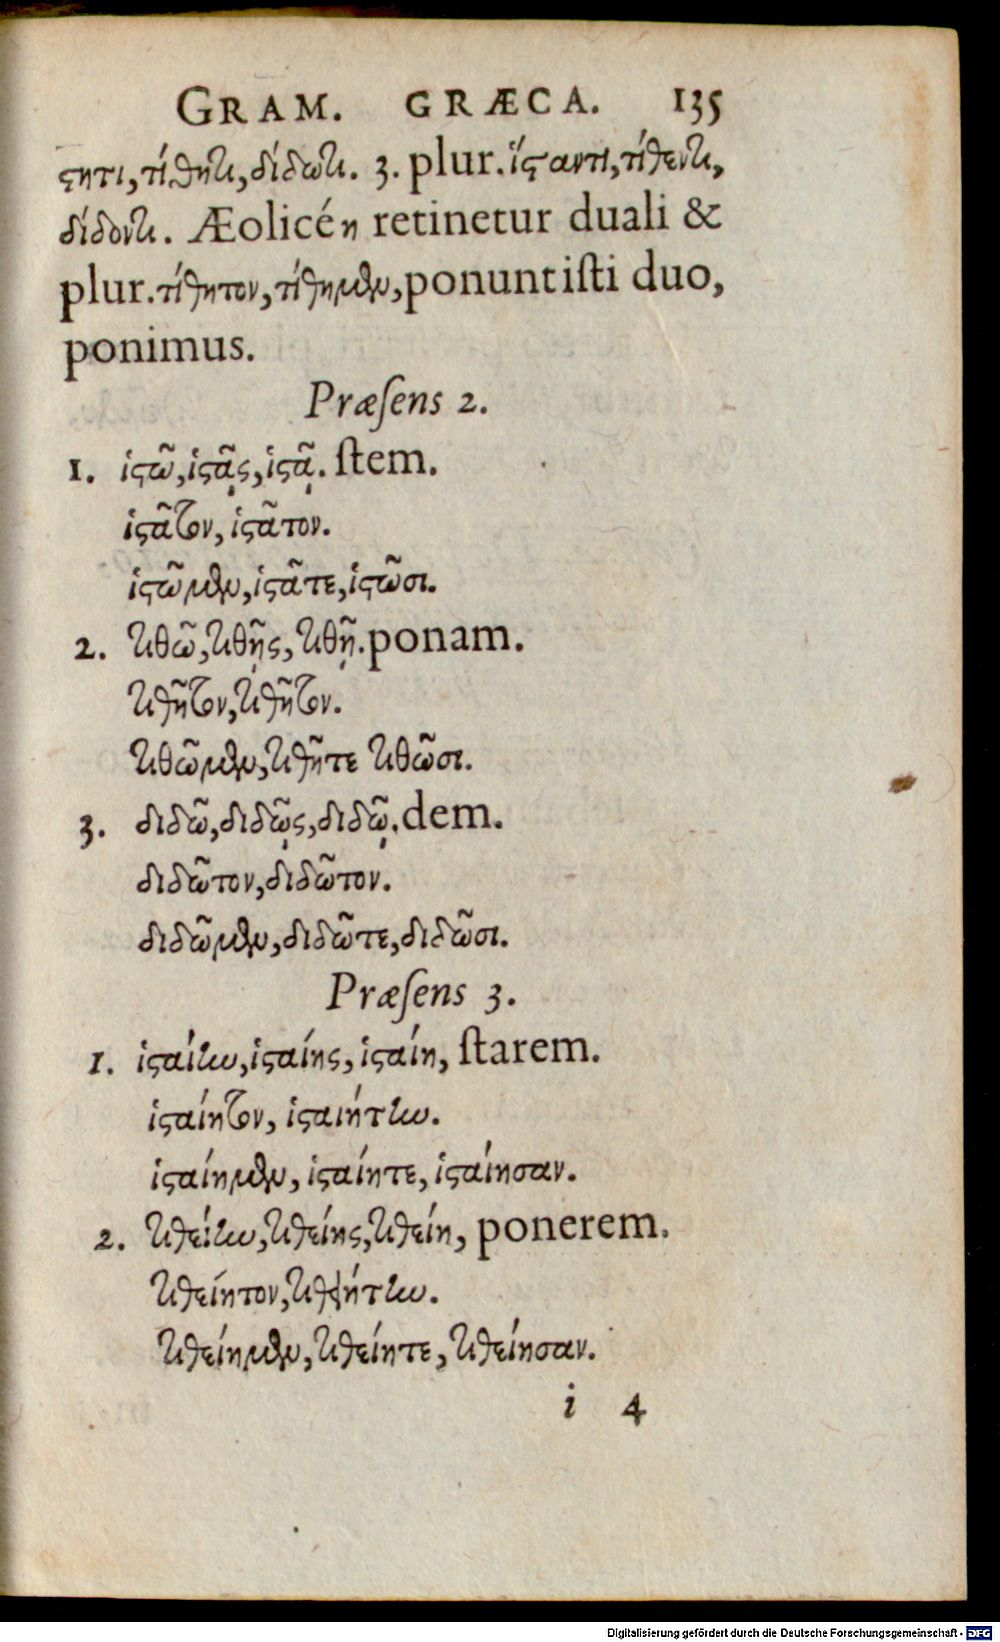 GRAM. GRÆCA. 135
ϛητι, τίθητι, δίδωτι. 3. plur. ἵϛαντι, τίθεντι,
δίδοντι. Æolicé η retinetur duali &
plur. τίθητον, τίθημεν, ponunt iſti duo,
ponimus.
Præſens 2.
1. ἱϛῶ, ἱϛᾷς, ἱϛᾷ. ſtem.
ἱϛᾶτον, ἱϛᾶτον.
ἱϛῶμεν, ἱϛᾶτε, ἱϛῶσι.
2. τιθῶ, τιθῇς, τιθῇ. ponam.
τιθῆτον, τιθῆτον.
τιθῶμεν, τιθῆτε τιθῶσι.
3. διδῶ, διδῷς, διδῷ. dem.
διδῶτον, διδῶτον.
διδῶμεν, διδῶτε, διδῶσι.
Præſens 3.
1. ἱϛαίην, ἱϛαίης, ἱϛαίη, ſtarem.
ἱϛαίητον, ἱϛαιήτην.
ἱϛαίημεν, ἱϛαίητε, ἱϛαίησαν.
2. τιθείην, τιθείης, τιθείη, ponerem.
τιθείητον, τιθειήτην.
τιθείημεν, τιθείητε, τιθείησαν.
i 4
Digitalisierung gefördert durch die Deutsche Forschungsgemeinschaft - DFG